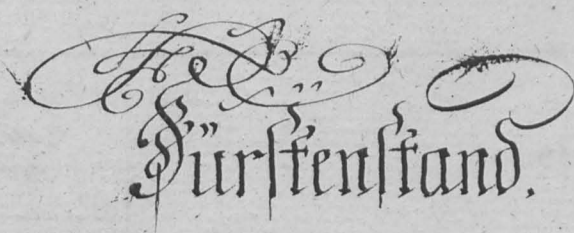 Fürstenstand.